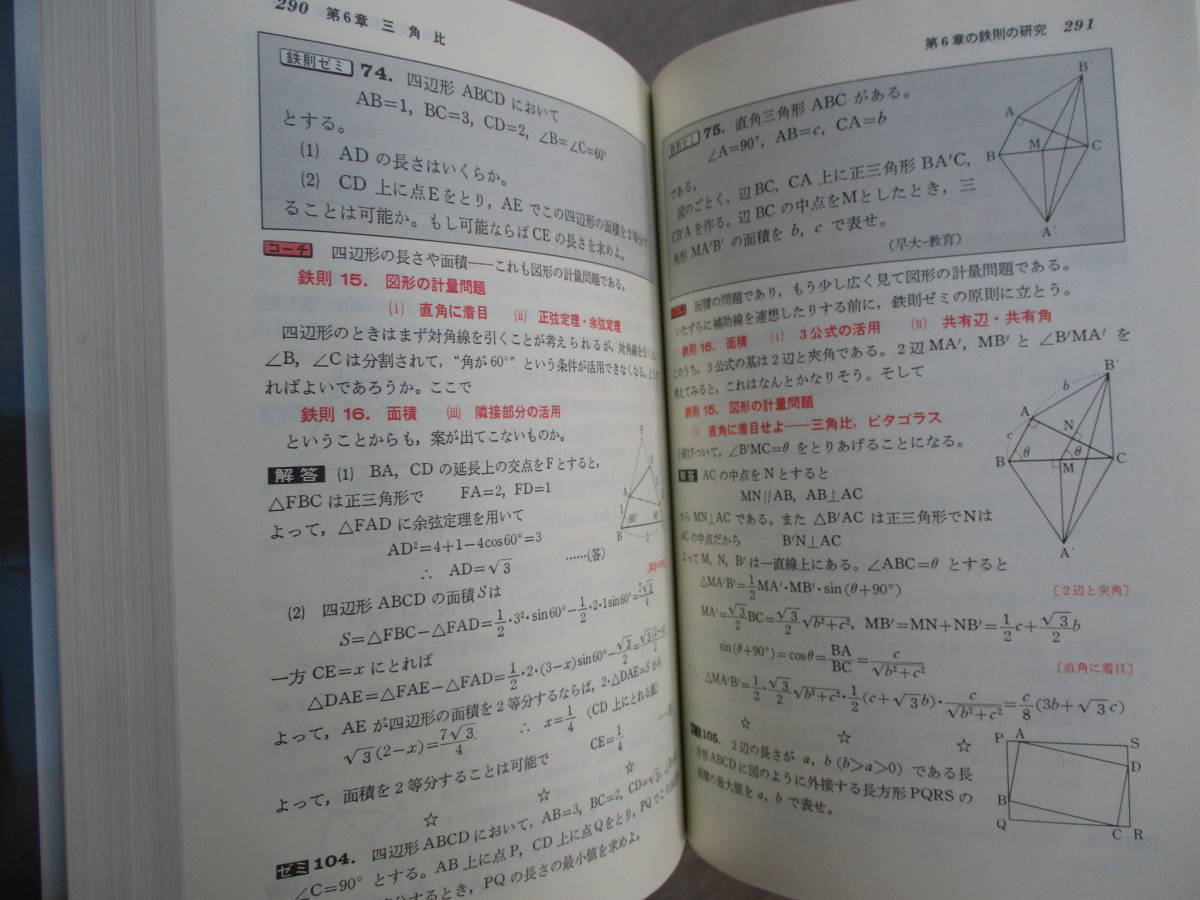 290 第6章 三角比
鉄則ゼミ 74. 四辺形 ABCD において
AB=1, BC=3, CD=2, ∠B=∠C=60°
とする。
(1) AD の長さはいくらか。
(2) CD 上に点Eをとり，AE でこの四辺形の面積を2等分す
ることは可能か。もし可能ならば CE の長さを求めよ。
コーチ 四辺形の長さや面積——これも図形の計量問題である，
鉄則 15. 図形の計量問題
(i) 直角に着目 (ii) 正弦定理・余弦定理
四辺形のときはまず対角線を引くことが考えられるが，対角線を引くと，
∠B，∠C は分割されて，“角が 60°” という条件が活用できなくなる。どうす
ればよいであろうか。ここで
鉄則 16. 面積 (iii) 隣接部分の活用
ということからも，案が出てこないものか。
解答 (1) BA，CD の延長上の交点をFとすると，
△FBC は正三角形で FA=2, FD=1
よって，△FAD に余弦定理を用いて
AD²=4+1−4cos60°=3
∴ AD=√3 ……(答)
(2) 四辺形 ABCD の面積 S は
S=△FBC−△FAD=1/2・3²・sin60°−1/2・2・1sin60°=7√3/4
一方 CE=x にとれば
△DAE=△FAE−△FAD=1/2・2・(3−x)sin60°−√3/2=√3(2−x)/2
よって，AE が四辺形の面積を2等分するならば，2・△DAE=S から
√3(2−x)=7√3/4 ∴ x=1/4 (CD 上にとれる値)
よって，面積を2等分することは可能で CE=1/4
☆ ☆ ☆
ゼミ 104. 四辺形 ABCD において，AB=3, BC=2, CD=√3,
∠C=90° とする。AB 上に点P，CD 上に点Qをとり，PQ でこの
するとき，PQ の長さの最小値を求めよ。
F
A
B
3
1
60°
60°
第6章の鉄則の研究 291
鉄則ゼミ 75. 直角三角形 ABC がある。
∠A=90°, AB=c, CA=b
である。
図のごとく，辺 BC, CA 上に正三角形 BA′C,
CB′A を作る。辺 BC の中点をMとしたとき，三
角形 MA′B′ の面積を b, c で表せ。
(早大-教育)
B′
A
M
B
C
A′
コーチ 面積の問題であり，もう少し広く見て図形の計量問題である。
いたずらに補助線を連想したりする前に，鉄則ゼミの原則に立とう。
鉄則 16. 面積 (i) 3公式の活用 (ii) 共有辺・共有角
このうち，3公式の基は2辺と夾角である。2辺 MA′, MB′ と ∠B′MA′ を
考えてみると，これはなんとかなりそう。そして
鉄則 15. 図形の計量問題
(i) 直角に着目せよ——三角比，ピタゴラス
と結びついて，∠B′MC=θ をとりあげることになる。
解答 AC の中点を N とすると
MN//AB, AB⊥AC
から MN⊥AC である。また △B′AC は正三角形で N は
AC の中点だから B′N⊥AC
よって M, N, B′ は一直線上にある。∠ABC=θ とすると
△MA′B′=1/2 MA′・MB′・sin(θ+90°) 〔2辺と夾角〕
MA′=√3/2 BC=√3/2 √b²+c², MB′=MN+NB′=1/2 c+√3/2 b
sin(θ+90°)=cosθ=BA/BC=c/√b²+c² 〔直角に着目〕
∴ △MA′B′=1/2・√3/2 √b²+c²・1/2(c+√3b)・c/√b²+c²=c/8(3b+√3c)
☆ ☆ ☆
B′
b
A
c
N
θ
θ
B
M
C
A′
ゼミ 105. 2辺の長さが a, b (b>a>0) である長
方形 ABCD に図のように外接する長方形 PQRS の
面積の最大値を a, b で表せ。
P
A
S
D
B
Q
C
R